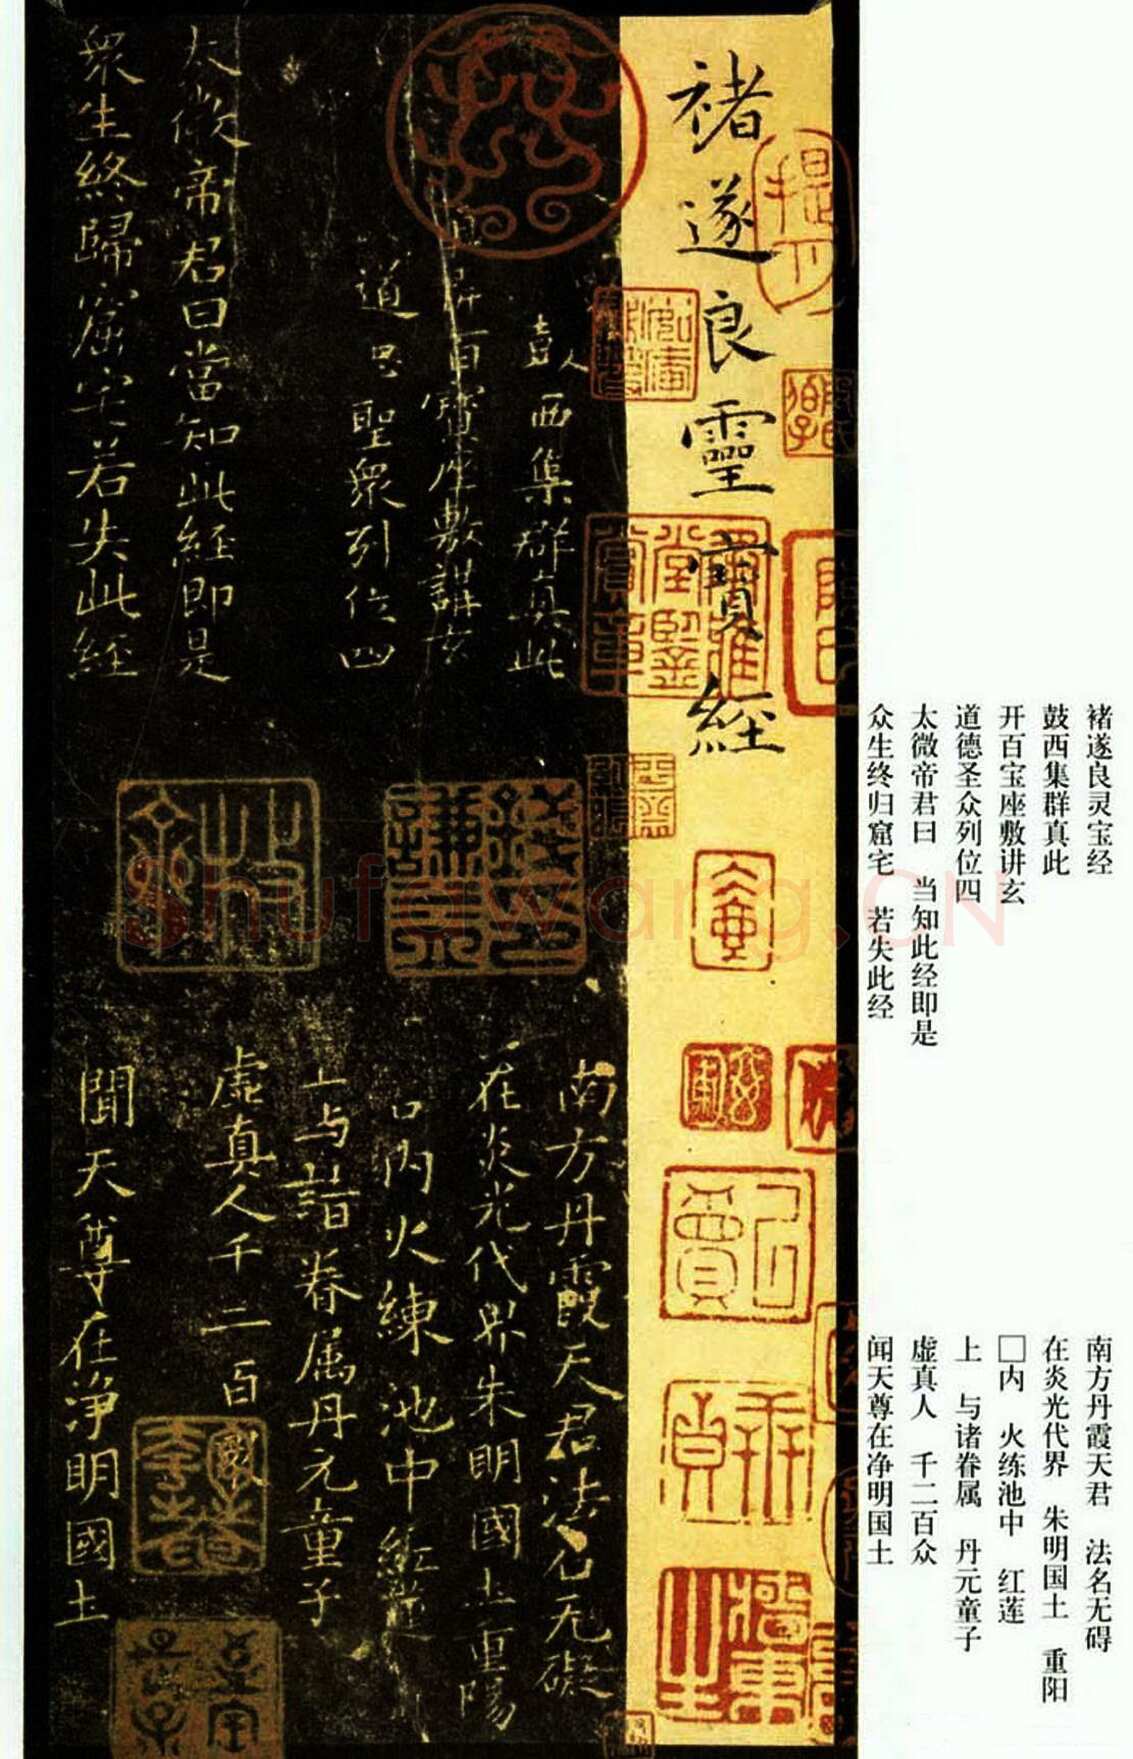 褚遂良靈寶經
鼓西集群真此
開百寶座敷講玄
道 聖眾列位四
太微帝君曰當知此經即是
眾生終歸窟宅若失此經
南方丹霞天君法名无礙
在炎光代界朱明國土重陽
內火練池中紅蓮
上与諸眷属丹元童子
虛真人千二百眾
聞天尊在淨明國土
褚遂良灵宝经
鼓西集群真此
开百宝座敷讲玄
道德圣众列位四
太微帝君曰 当知此经即是
众生终归窟宅 若失此经
南方丹霞天君 法名无碍
在炎光代界 朱明国土 重阳
□内 火练池中 红莲
上 与诸眷属 丹元童子
虚真人 千二百众
闻天尊在净明国土
Shufawang.CN